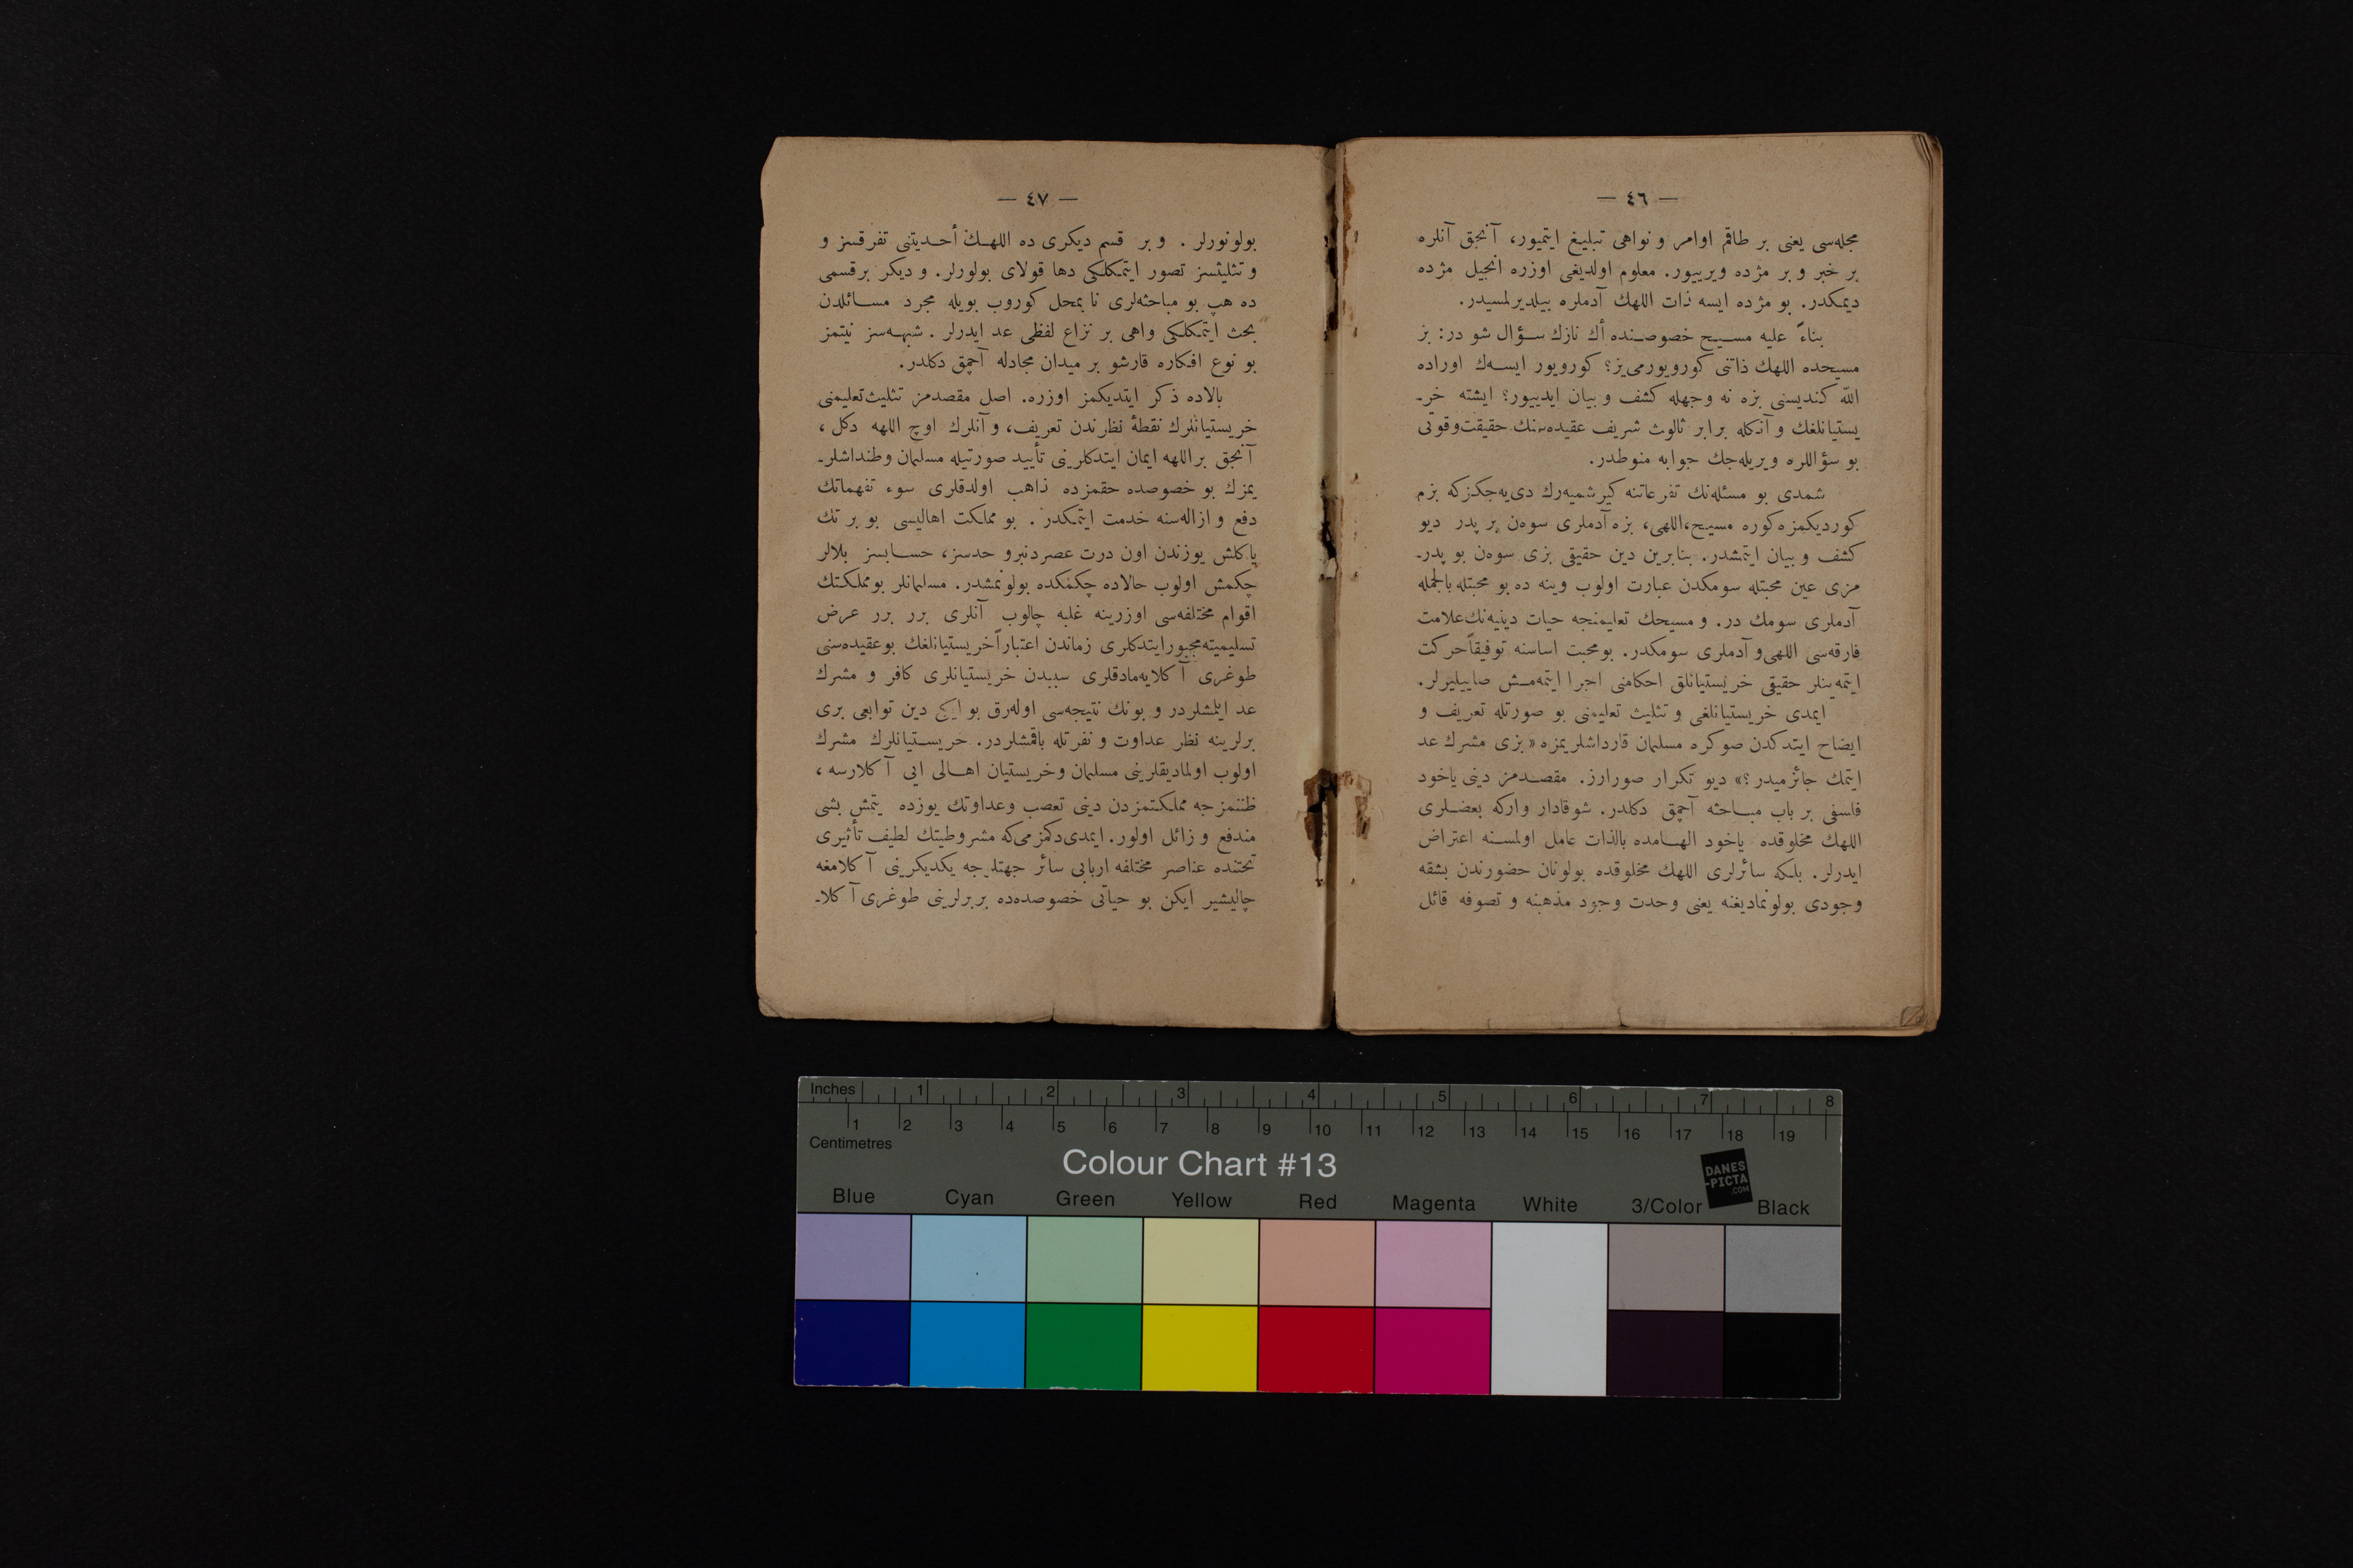 — ٤٦ —
مجله‌سی یعنی بر طاقم اوامر و نواهی تبلیغ ایتمیور، آنجق آنلره
بر خبر و بر مژده ویرییور. معلوم اولدیغی اوزره انجیل مژده
دیمکدر. بو مژده ایسه ذات اللهك آدملره بیلدیرلمسیدر.
بناءً علیه مسیح خصوصنده أك نازك سؤال شو در: بز
مسیحده اللهك ذاتنی کورویورمی‌یز؟ کورویور ایسه‌ك اوراده
اللّٰه کندیسنی بزه نه وجهله کشف و بیان ایدییور؟ ایشته خر-
یستیانلغك و آنکله برابر ثالوث شریف عقیده‌سنك حقیقت‌وقوتی
بو سؤاللره ویریله‌جك جوابه منوطدر.
شمدی بو مسئله‌نك تفرعاتنه کیرشمیه‌رك دی‌یه‌جکزکه بزم
کوردیکمزه کوره مسیح،اللهی، بزه آدملری سوه‌ن بر پدر دیو
کشف و بیان ایتمشدر. بنابرین دین حقیقی بزی سوه‌ن بو پدر-
مزی عین محبتله سومکدن عبارت اولوب وینه ده بو محبتله بالجمله
آدملری سومك در. و مسیحك تعلیمنجه حیات دینیه‌نك‌علامت
فارقه‌سی اللهی‌و آدملری سومکدر. بومحبت اساسنه توفیقاً‌حرکت
ایتمه‌ینلر حقیقی خریستیانلق احکامنی اجرا ایتمه‌مش صاییلیرلر.
ایمدی خریستیانلغی و تثلیث تعلیمنی بو صورتله تعریف و
ایضاح ایتدکدن صوکره مسلمان قارداشلریمزه «بزی مشرك عد
ایتمك جائزمیدر؟» دیو تکرار صورارز. مقصدمز دینی یاخود
فلسفی بر باب مباحثه آچمق دکلدر. شوقادار وارکه بعضلری
اللهك مخلوقده یاخود الهامده بالذات عامل اولمسنه اعتراض
ایدرلر. بلکه سائرلری اللهك مخلوقده بولونان حضورندن بشقه
وجودی بولونمادیغنه یعنی وحدت وجود مذهبنه و تصوفه قائل
— ٤٧ —
بولونورلر. و بر قسم دیکری ده اللهك أحدیتنی تفرقسز و
و تثلیثسز تصور ایتمکلکی دها قولای بولورلر. و دیکر برقسمی
ده هپ بو مباحثه‌لری نا بمحل کوروب بویله مجرد مسائلدن
بحث ایتمکلکی واهی بر نزاع لفظی عد ایدرلر. شبهه‌سز نیتمز
بو نوع افکاره قارشو بر میدان مجادله آچمق دکلدر.
بالاده ذکر ایتدیکمز اوزره. اصل مقصدمز تثلیث‌تعلیمنی
خریستیانلرك نقطۀ نظرندن تعریف، و آنلرك اوچ اللهه دکل،
آنجق براللهه ایمان ایتدکلرینی تأیید صورتیله مسلمان وطنداشلر-
یمزك بو خصوصده حقمزده ذاهب اولدقلری سوء تفهماتك
دفع و ازاله‌سنه خدمت ایتمکدر. بو مملکت اهالیسی بو بر تك
یاکلش یوزندن اون درت عصردنبرو حدسز، حسابسز بلالر
چکمش اولوب حالاده چکمکده بولونمشدر. مسلمانلر بومملکتك
اقوام مختلفه‌سی اوزرینه غلبه چالوب آنلری برر برر عرض
تسلیمیته‌مجبورایتدکلری زماندن اعتباراً‌خریستیانلغك بوعقیده‌سنی
طوغری آکلایه‌مادقلری سببدن خریستیانلری کافر و مشرك
عد ایلمشلردر و بونك نتیجه‌سی اوله‌رق بو ایکی دین توابعی بری
برلرینه نظر عداوت و نفرتله باقمشلردر. خریستیانلرك مشرك
اولوب اولمادیقلرینی مسلمان وخریستیان اهالی ایی آکلارسه،
ظننمزجه مملکتمزدن دینی تعصب وعداوتك یوزده یتمش بشی
مندفع و زائل اولور. ایمدی‌دکمزمی‌که مشروطیتك لطیف تأثیری
تحتنده عناصر مختلفه اربابی سائر جهتلرجه یکدیکرینی آکلامغه
چالیشیر ایکن بو حیاتی خصوصده‌ده بربرلرینی طوغری آکلا-
Inches 1 2 3 4 5 6 7 8
1 2 3 4 5 6 7 8 9 10 11 12 13 14 15 16 17 18 19
Centimetres
Colour Chart #13
DANES
-PICTA
.COM
Blue Cyan Green Yellow Red Magenta White 3/Color Black